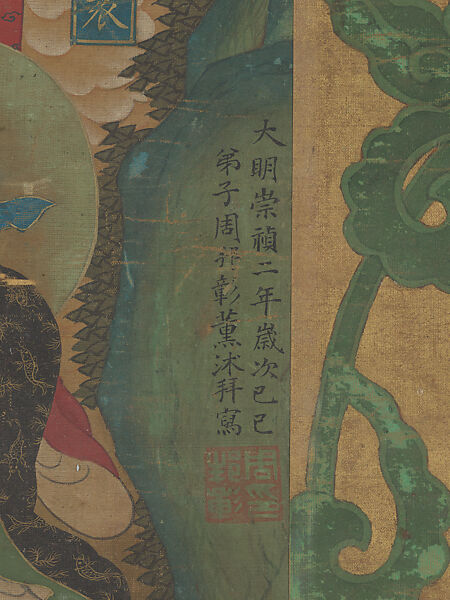 大明崇禎二年歲次己巳
弟子周彰薰沐拜寫